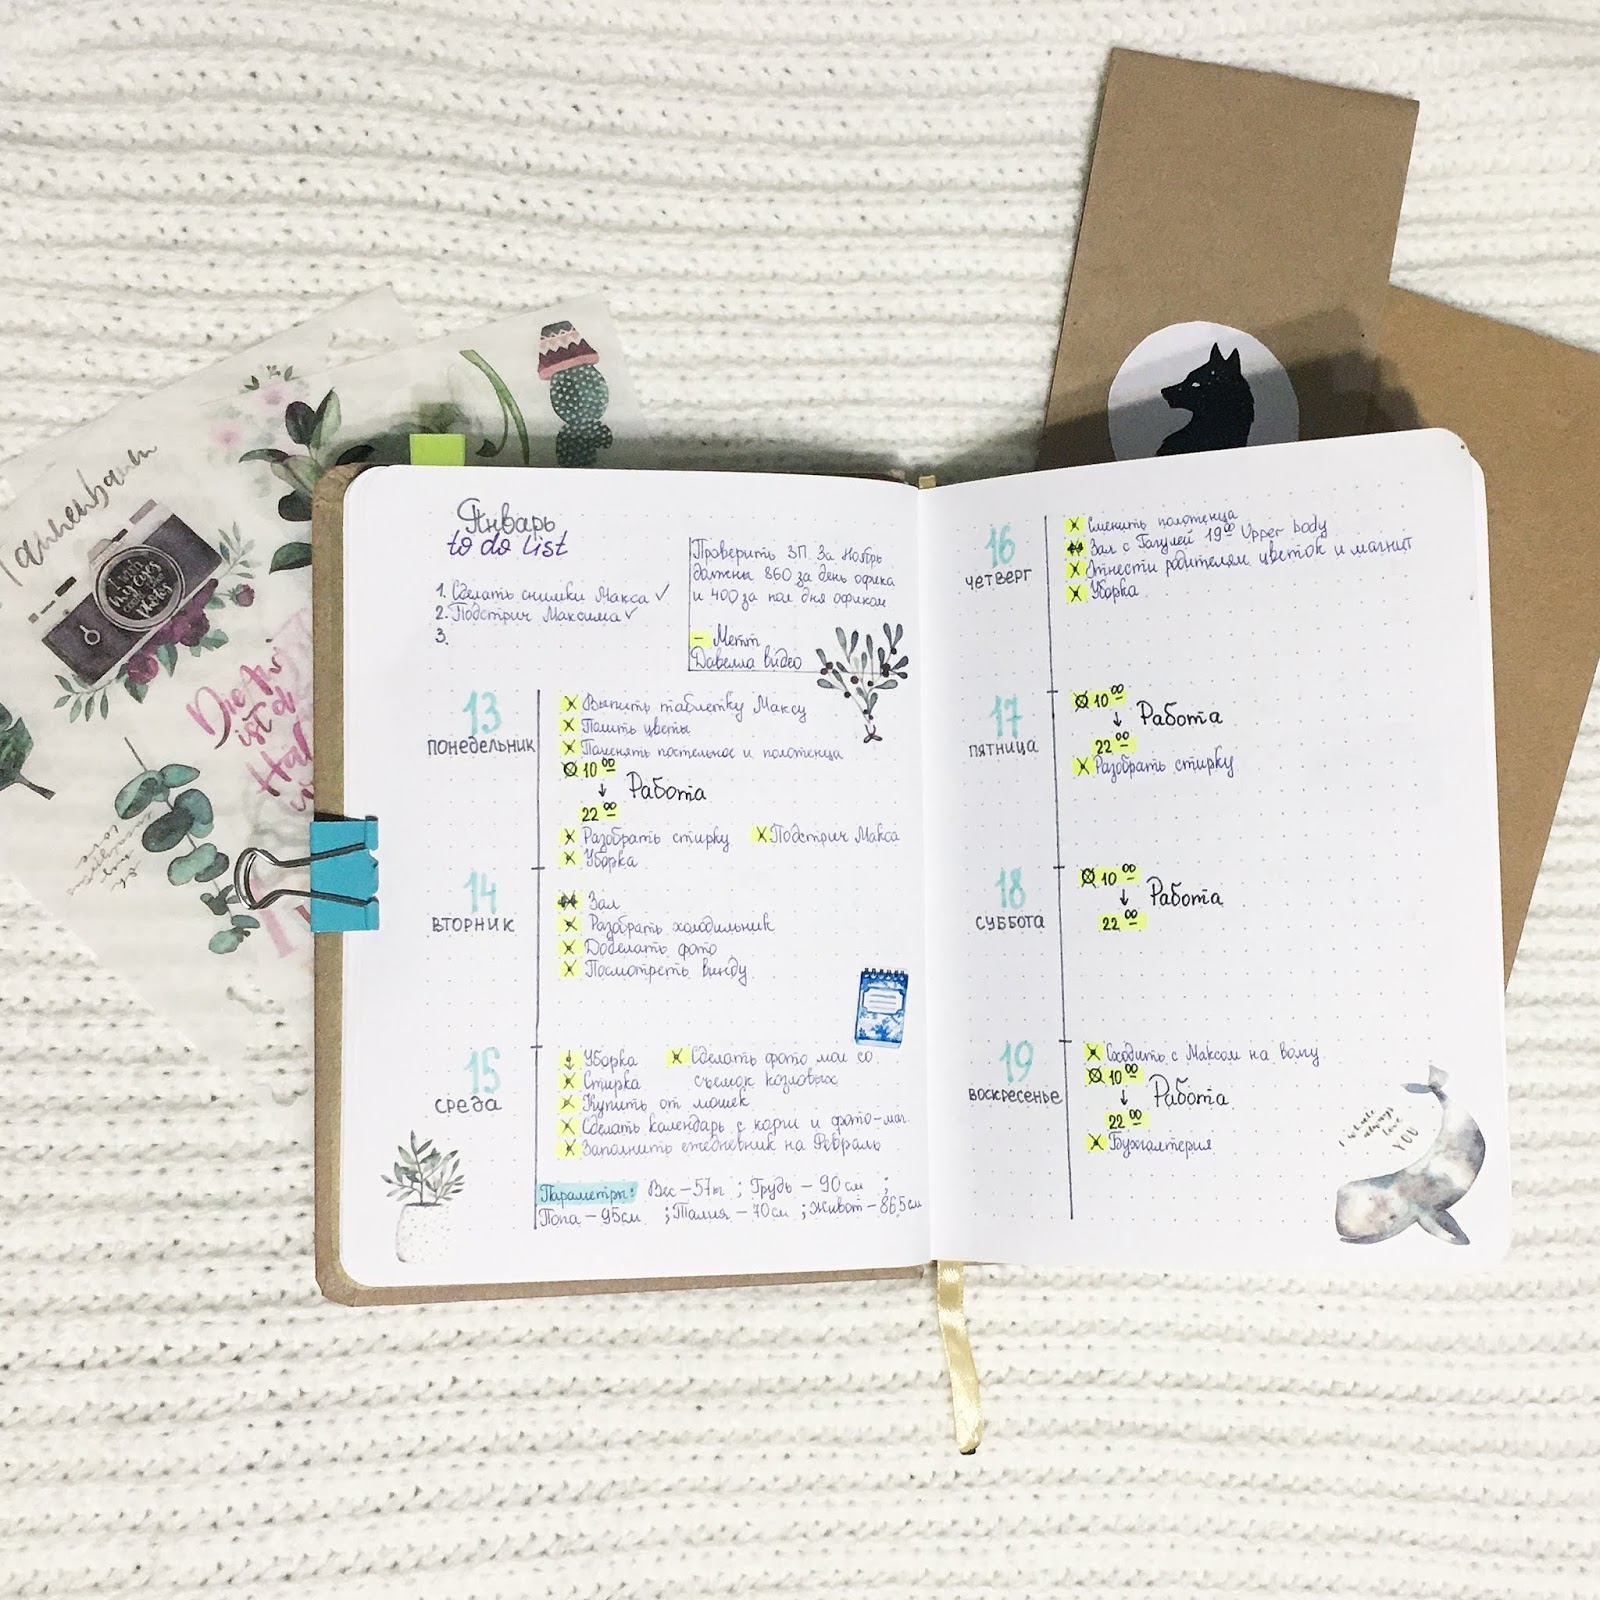 Tannenbaum
Январь
to do list
1. Сделать снимки Макса ✓
2. Подстрич Максима ✓
3.
Проверить ЗП. За Ноябрь
должны 860 за день офика
и 400 за пол дня офиком
– Метт
Давелла видео
13
понедельник
Выпить таблетку Максу
Полить цветы
Поменять постельное и полотенца
10 00
↓ Работа
22 00
Разобрать стирку
Подстрич Макса
Уборка
14
вторник
Зал
Разобрать холодильник
Доделать фото
Посмотреть винду
15
среда
Уборка
Стирка
Купить от мошек
Сделать фото мои со
съемок козловых
Сделать календарь с корги и фото-маг.
Заполнить ежедневник на Февраль
Параметры: Вес – 57кг ; Грудь – 90 см ;
Попа – 95см ; Талия – 70см ; Живот – 86,5см
16
четверг
Сменить полотенца
Зал с 19 00 Upper body
Отнести родителям цветок и магнит
Уборка
17
пятница
10 00
↓ Работа
22 00
Разобрать стирку
18
суббота
10 00
↓ Работа
22 00
19
воскресенье
Сходить с Максом на
10 00
↓ Работа
22 00
Бухгалтерия
always
love
YOU